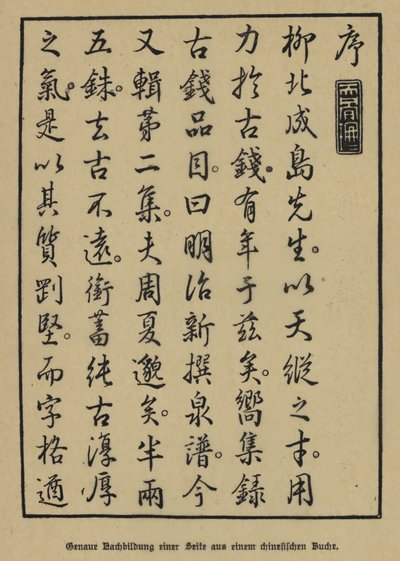 序
柳北成島先生。以天縱之才。用
力於古錢。有年于茲矣。嚮集錄
古錢品目。曰明治新撰泉譜。今
又輯苐二集。夫周夏邈矣。半兩
五銖。去古不遠。銜蓄純古淳厚
之氣。是以其質剛堅。而字格遒
Genaue Nachbildung einer Seite aus einem chinesischen Buche.